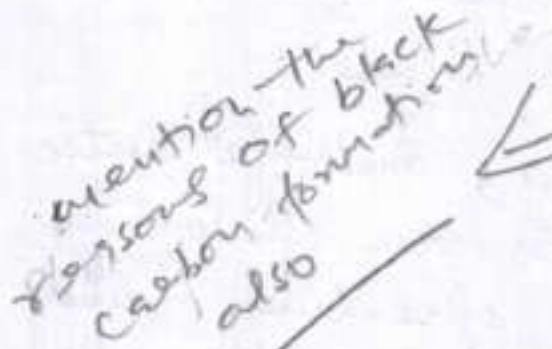 mention the
reasons of black
carbon formation
also